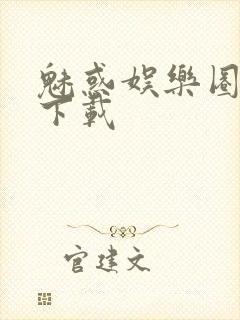 魅惑娱樂圈
下載
官建文